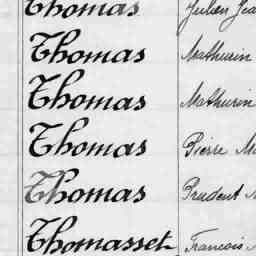 Thomas Julien
Thomas Mathurin
Thomas Mathurin
Thomas Pierre
Thomas Prudent
Thomasset Francois